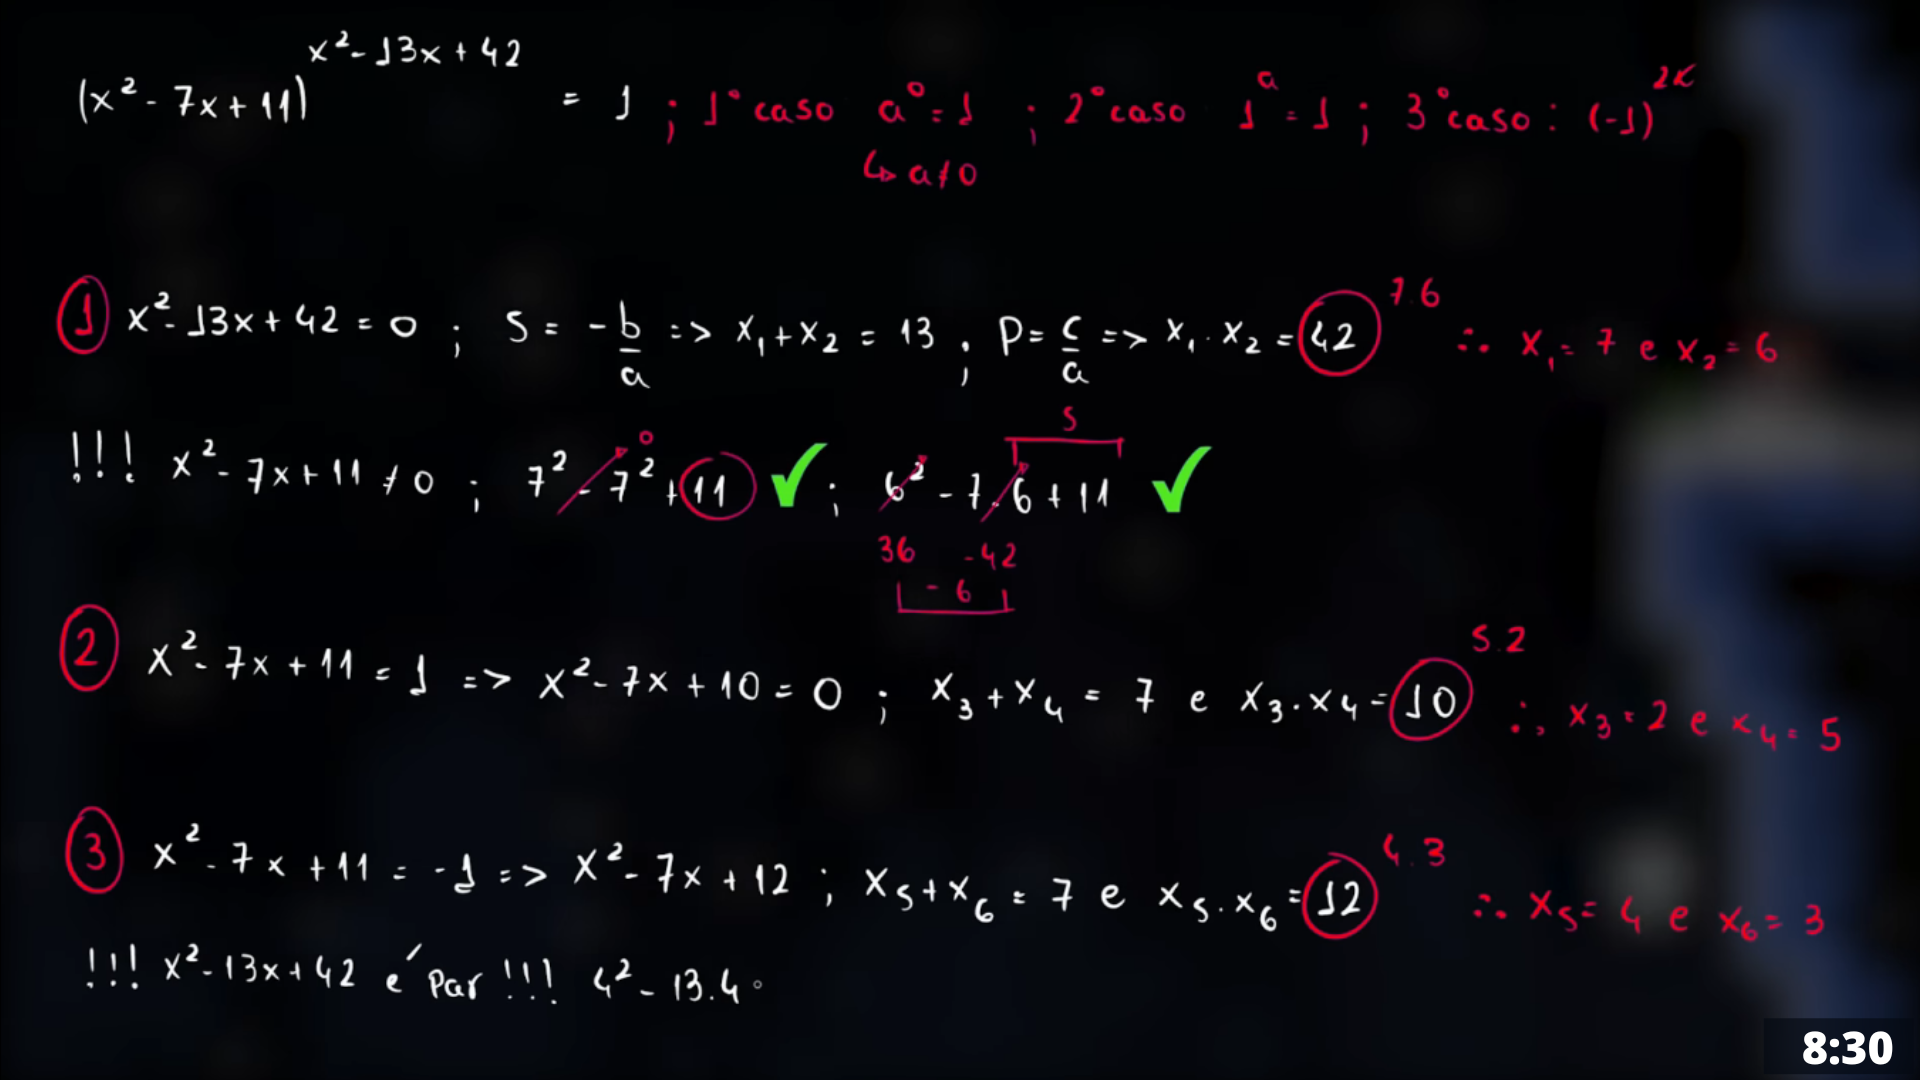 (x² - 7x + 11)^(x² - 13x + 42) = 1 ; 1° caso a° = 1 ; 2° caso 1^a = 1 ; 3° caso : (-1)^2K
↳ a ≠ 0
① x² - 13x + 42 = 0 ; S = -b/a => x₁ + x₂ = 13 ; P = c/a => x₁ . x₂ = 42 7.6 ∴ x₁ = 7 e x₂ = 6
5
!!! x² - 7x + 11 ≠ 0 ; 7² - 7² 0 + 11 ✓ ; 6² - 7.6 + 11 ✓
36 -42
- 6
② x² - 7x + 11 = 1 => x² - 7x + 10 = 0 ; x₃ + x₄ = 7 e x₃ . x₄ = 10 5.2 ∴ x₃ = 2 e x₄ = 5
③ x² - 7x + 11 = -1 => x² - 7x + 12 ; x₅ + x₆ = 7 e x₅ . x₆ = 12 4.3 ∴ x₅ = 4 e x₆ = 3
!!! x² - 13x + 42 é Par !!! 4² - 13.4
8:30